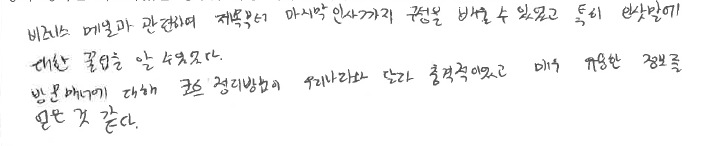 비즈니스 메일과 관련하여 제목부터 마지막 인사까지 구성을 배울 수 있었고 특히 인삿말에
대한 꿀팁을 알 수 있었다.
방문매너에 대해 코트 정리방법이 우리나라와 달라 충격적이었고 매우 유용한 정보를
얻은 것 같다.